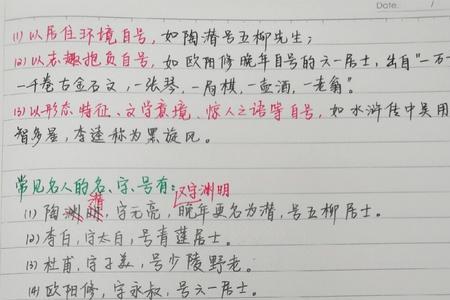 Date. /
(1) 以居住环境自号, 如陶潜号五柳先生;
(2) 以志趣抱负自号, 如欧阳修晚年自号的六一居士, 出自“一万
一千卷古金石文, 一张琴, 一局棋, 一壶酒, 一老翁”.
(3) 以形态特征、文学意境、惊人之语等自号, 如水浒传中吴用
智多星, 李逵称为黑旋风.
常见名人的名、字、号有: 又字渊明
(1) 陶潜, 字元亮, 晚年更名为潜, 号五柳居士.
(2) 李白, 字太白, 号青莲居士.
(3) 杜甫, 字子美, 号少陵野老.
(4) 欧阳修, 字永叔, 号六一居士.